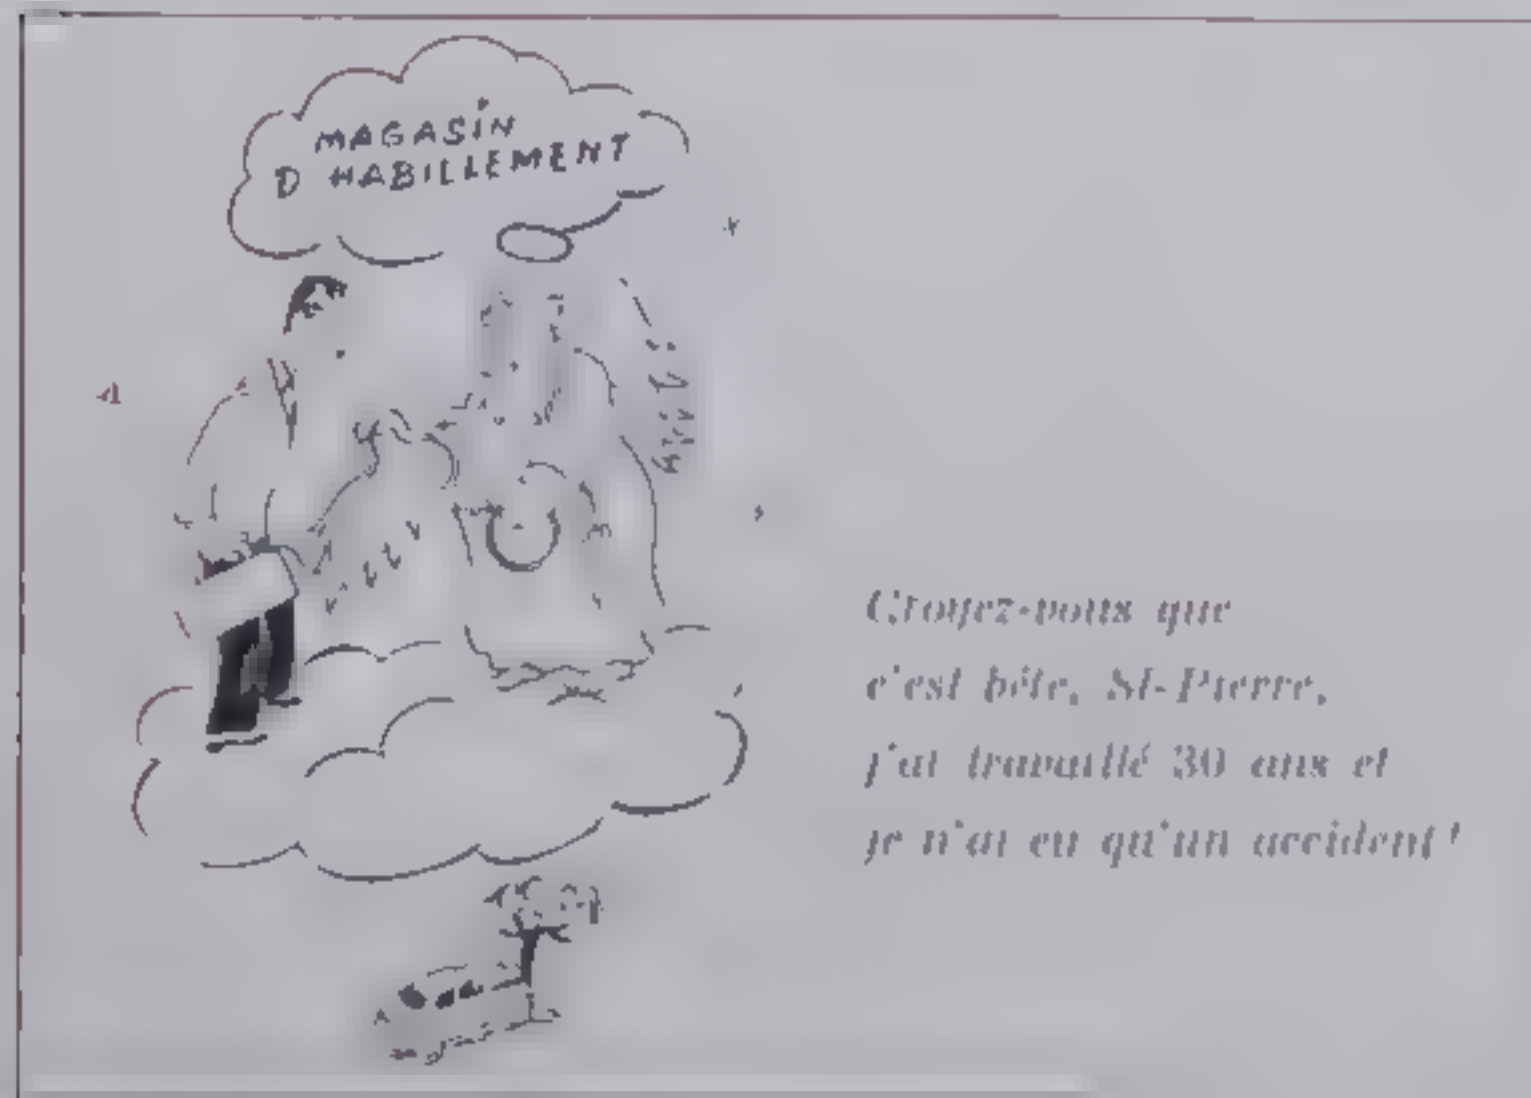 MAGASIN
D HABILLEMENT
Croyez-vous que
c'est bête, St-Pierre,
j'ai travaillé 30 ans et
je n'ai eu qu'un accident!